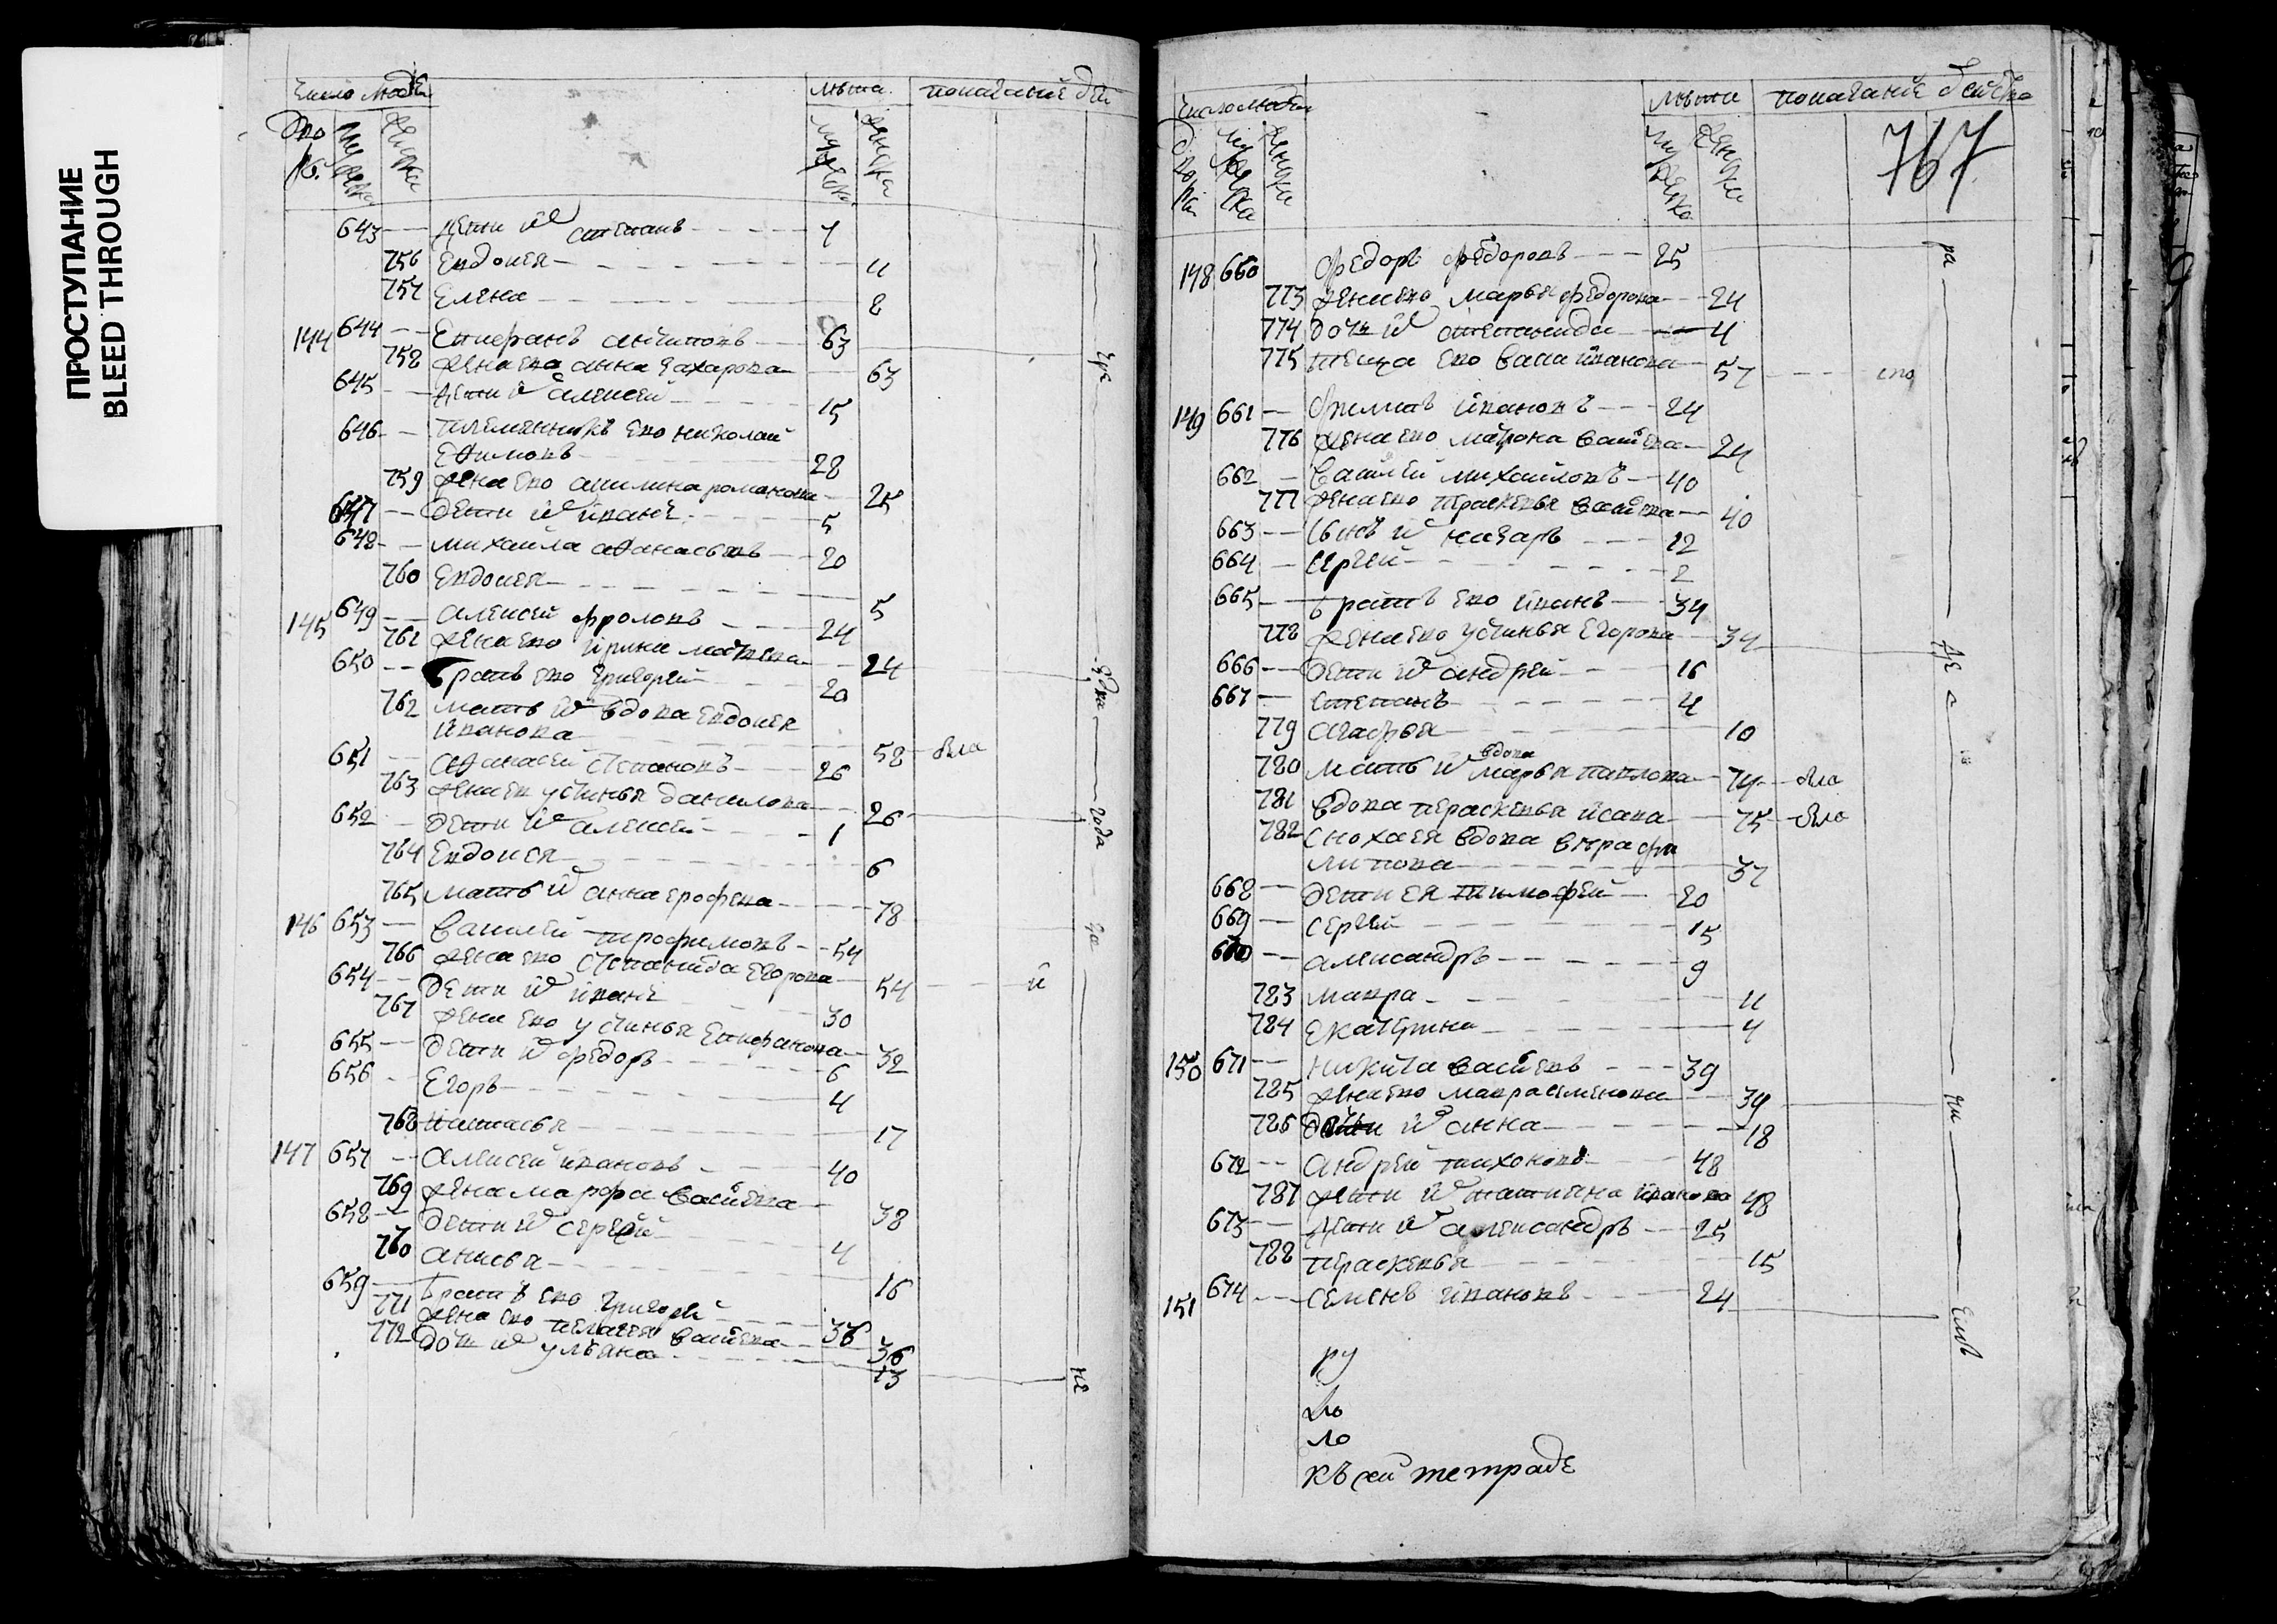 ПРОСТУПАНИЕ
BLEED THROUGH
число людей
лѣта
показание дей
643 — дети иꙋ степанъ — 7
756 Евдокея — 11
757 Елена — 8
144 644 — Епифанъ антиповъ — 63
758 жена ево анна захарова — 63
645 — дети иꙋ алексей — 15
646 — племянникъ ево николай
Ефимовъ — 28
759 жена ево акилина романова — 25
647 — дети иꙋ иванъ — 5
648 — михаила афанасьевъ — 20
760 Евдокея — 5
145 649 — алексей фроловъ — 24
761 жена ево ирина матвева — 24
650 — братъ ево григорей — 20
762 мать иꙋ вдова евдокея
иванова — 58 — была
651 — афанасей степановъ — 26
763 жена ек устинья данилова — 26
652 — дети иꙋ алексей — 1
764 Евдокея — 6
765 мать иꙋ анна ерофева — 78
146 653 — василей трофимовъ — 54
766 жена ево степанида егорова — 54
654 — дети иꙋ иванъ — 30
767 жена ево устинья епифанова — 32
655 — дети иꙋ федоръ — 6
656 — Егоръ — 4
768 настасья — 17
147 657 — алексей ивановъ — 40
769 жена марфа васильева — 38
658 — дети иꙋ сергей — 4
760 анисья — 16
659 — братъ ево григорей — 36
771 жена ево пелагея васильева — 36
772 дочь иꙋ ульяна — 13
число людей
лѣта
показание действа
767
148 660 федоръ федоровъ — 25
773 жена ево марья федорова — 24
774 дочь иꙋ степанида — 4
775 теща ево васа иванова — 57
149 661 — филипъ ивановъ — 24
776 жена ево матрона васильева — 24
662 — василей михаиловъ — 40
777 жена ево праскевья васильева — 40
663 — сынъ иꙋ назаръ — 12
664 — сергей — 2
665 — братъ ево иванъ — 34
778 жена ево устинья егорова — 34
666 — дети иꙋ андрей — 16
667 — степанъ — 4
779 агафья — 10
780 мать иꙋ вдова марья павлова — 74 — была
781 вдова параскевья исаева — 75 — была
782 сноха ея вдова
липова — 37
668 — дети ея тимофей — 20
669 — сергей — 15
670 — александръ — 9
783 мавра — 11
784 екатерина — 4
150 671 — никита васильевъ — 39
785 жена ево мавра семенова — 39
786 дочь иꙋ анна — 18
672 — андрей тихоновъ — 48
787 жена иꙋ татияна иванова 48
673 — дети иꙋ александръ — 25
788 праскевья — 15
151 674 — семенъ ивановъ — 24
ру
ло
къ сей тетраде